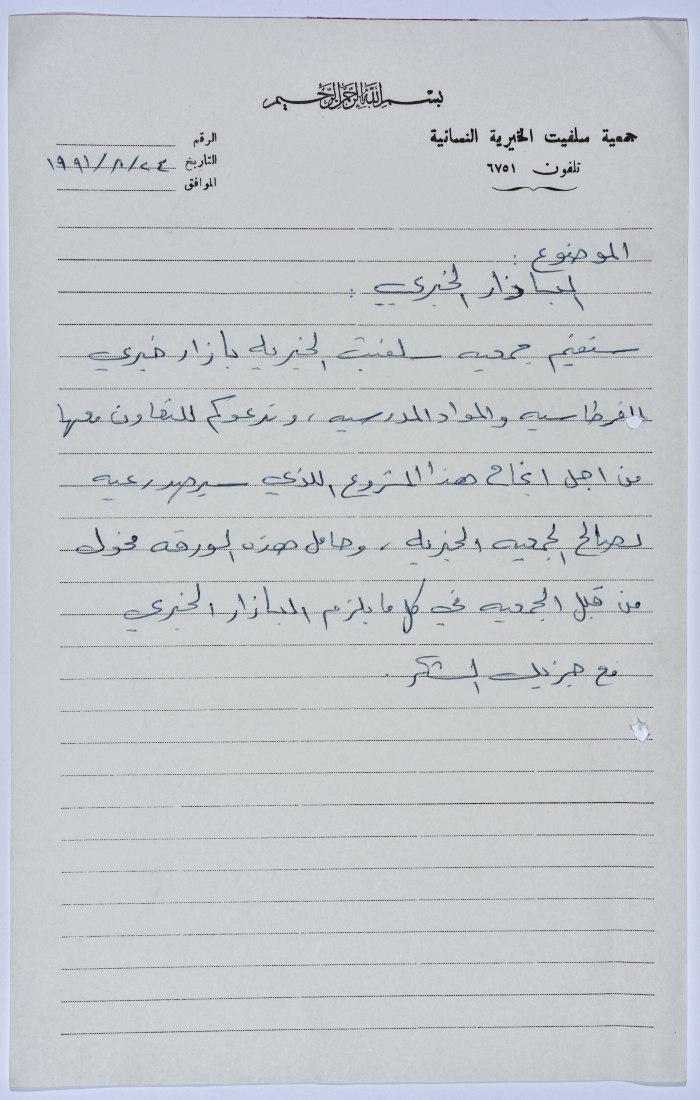 بسم الله الرحمن الرحيم
جمعية سلفيت الخيرية النسائية
تلفون ٦٧٥١
الرقم
التاريخ ٢٤/٨/١٩٩١
الموافق
الموضوع :
البازار الخيري :
ستقيم جمعيه سلفيت الخيريه بازار خيري
بالقرطاسيه والمواد المدرسيه ، وندعوكم للتعاون معها
من اجل انجاح هذا المشروع اللذي سيرصد رعيه
لصالح الجمعيه الخيريه ، وحامل هذه الورقه مخول
من قبل الجمعيه في كل ما يلزم البازار الخيري
مع جزيل الشكر .